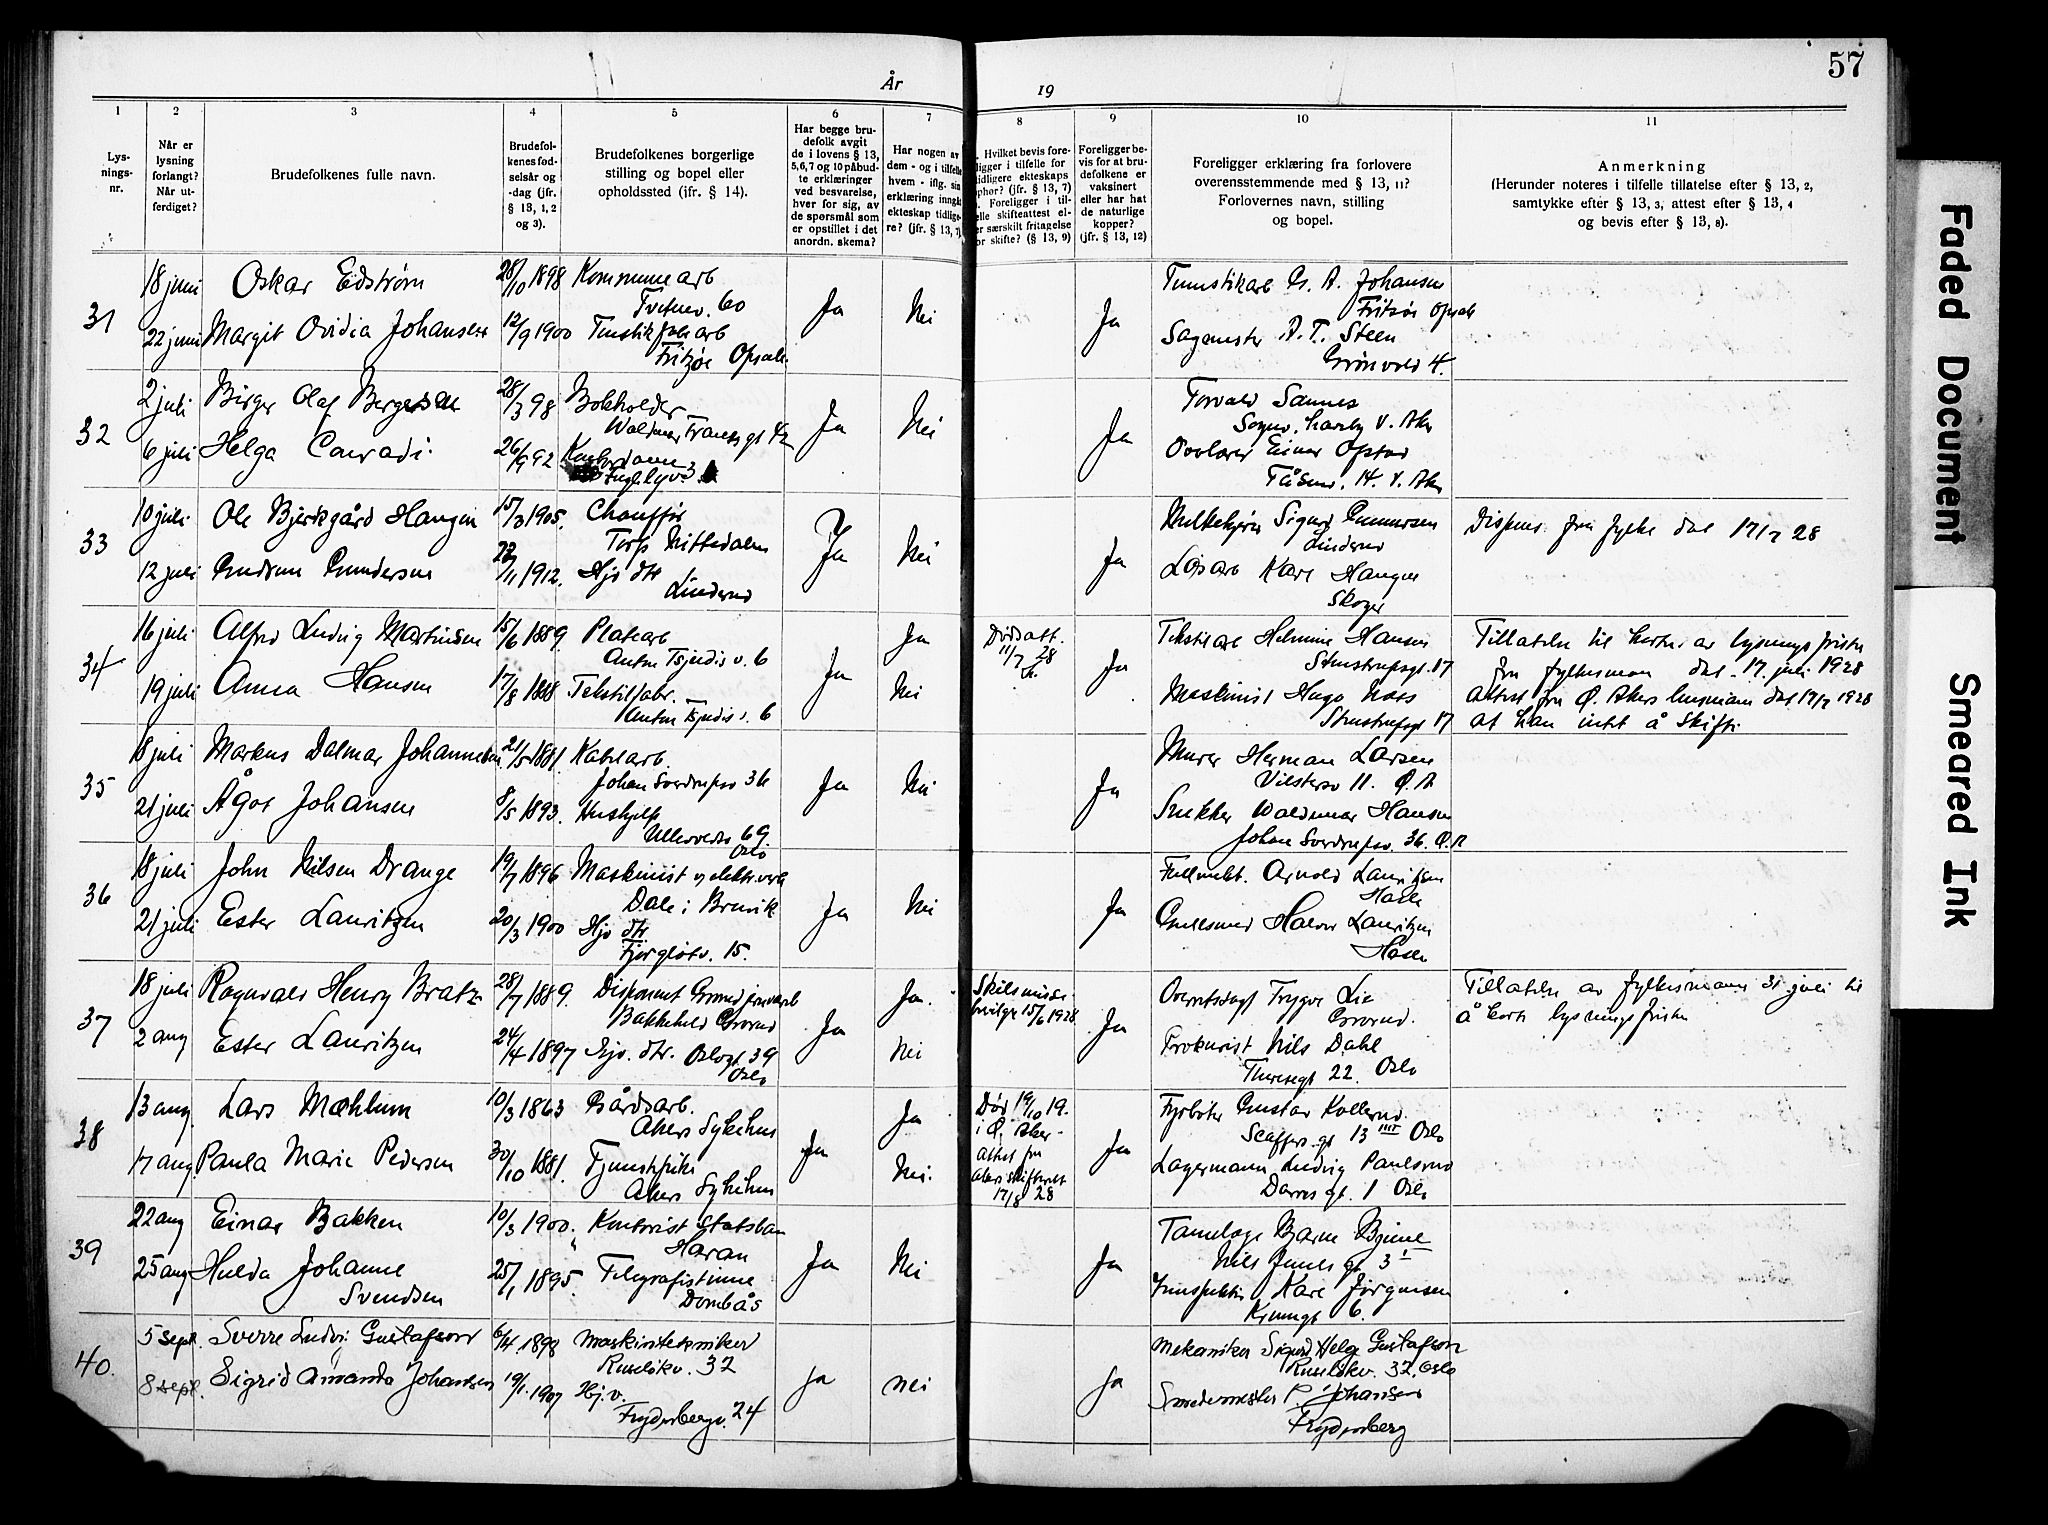 57
År 19
1 2 3 4 5 6 7 8 9 10 11
Lys-
nings-
nr.
Når er
lysning
forlangt?
Når ut-
ferdiget?
Brudefolkenes fulle navn.
Brudefol-
kenes fød-
selsår og
-dag (jfr.
§ 13, 1, 2
og 3).
Brudefolkenes borgerlige
stilling og bopel eller
opholdssted (jfr. § 14).
Har begge bru-
defolk avgit
de i lovens § 13,
5,6,7 og 10 påbud-
te erklæringer
ved besvarelse,
hver for sig, av
de spørsmål som
er opstillet i det
anordn. skema?
Har nogen av
dem - og i tilfelle
hvem - iflg. sin
erklæring inngått
ekteskap tidlige-
re? (jfr. § 13, 7)
Hvilket bevis fore-
ligger i tilfelle for
tidligere ekteskaps
ophør? (jfr. § 13, 7)
Foreligger i til-
felle skifteattest el-
er særskilt fritagelse
for skifte? (§ 13, 9)
Foreligger be-
vis for at bru-
defolkene er
vaksinert
eller har hat
de naturlige
kopper?
(jfr. § 13, 12)
Foreligger erklæring fra forlovere
overensstemmende med § 13, 11?
Forlovernes navn, stilling
og bopel.
Anmerkning
(Herunder noteres i tilfelle tillatelse efter § 13, 2,
samtykke efter § 13, 3, attest efter § 13, 4
og bevis efter § 13, 8).
31
18 juni Oskar Eidstrøm 28/10 1898 Kommunearb
Tvetenv. 60
22 juni Margit Ovidia Johansen 12/9 1900
Fritzøe Opsal.
Ja Nei Ja
A. Johansen
Fritzøe Opsal
A. T. Steen
Grønvold 4.
32
2 juli Birger Olaf Bergersen 28/3 98 Bokholder
6 juli Helga Conradi 26/9 92 Kontordame
Ja Nei Ja
Torvald Sannes
Einar Opstad
Tåsenv. 14. V. Aker
33
10 juli Ole Bjerkgård Haugen 15/3 1905. Chauffør
Nittedalen
12 juli Gudrun Gundersen 22/11 1912. Hjv dtr
Linderud
Ja Nei Ja
Sigurd Gundersen
Linderud
Løsarb Karl Haugen
Skoger
Dispens. fra fylke dat 17/7 28
34
16 juli Alfred Ludvig Martinsen 15/6 1889. Platearb
Anton Tschudis v. 6
19 juli Anna Hansen 17/8 1888 Tekstilfabr.
Anton Tschudis v. 6
Ja Ja
Nei
Dødsatt.
11/7 28
Ja
Tekstilarb Helmine Hansen
Stenstrupsgt. 17
Maskinist Hugo Naas
Stenstrupsgt 17
Tillatelse til korter av lysningsfristen
fra fylkesmann dat. 17. juli 1928
Attest fra Ø. Akers lensmann dat 17/7 1928
at han intet å skifte
35
18 juli Markus Dalmar Johannesen 21/5 1881. Kabelarb.
Johan Sverdrupsv 36
21 juli Ågot Johansen 8/5 1893. Hushjelp
Ullevoldsv 69
Oslo
Ja Nei Ja
Murer Herman Larsen
11. Ø. A
Snekker Waldemar Hansen
Johan Sverdrupsv. 36. Ø. A
36
18 juli John Nilsen Drange 19/7 1896 Maskinist v elektr.verk
Dale i Bruvik
21 juli Ester Lauritzen 20/3 1900 Hjv dtr
15.
Ja Nei Ja
Fullmekt. Arnold Lauritzen
Hasle
Gullsmed Halvor Lauritzen
Hasle
37
18 juli Ragnvald Henry Bratz 28/7 1889. Disponent Grorud jernvarefb
Bakkehaug Grorud
2 aug Ester Lauritzen 24/4 1897 Hjv. dtr. Oslogt 39
Oslo
Ja Ja.
Nei
Skilsmisse
bevilgn 15/6 1928
Ja
Overretssagf Trygve Lie
Grorud.
Prokurist Nils Dahl
Theresegt 22. Oslo
Tillatelse av fylkesmann 31 juli til
å korte lysningsfristen
38
13 aug. Lars Mæhlum 10/3 1863 Gårdsarb.
Akers Sykehus
17 aug. Paula Marie Pedersen 30/10 1881. Tjenestepike
Akers Sykehus
Ja Ja
Nei.
Død 19/10 19.
i Ø. Aker -
attest fra
Aker skifterett
17/8 28
Ja
Fyrbøter Gustav Kollerud.
gt 13 Oslo
Lagermann Ludvig Paulsrud
Darres gt. 1 Oslo
39
22 aug Einar Bakken 10/3 1900. Kontorist Statsban
Hamar
25 aug Hulda Johanne
Svendsen 25/1 1895. Telegrafistinne
Dombås
Ja Nei Ja
Tannlæge Bjarne
Nils Juels gt 3
Inspektør Karl Jørgensen
6.
40.
5 sept. Sverre Ludvi: Gustafson 6/4 1898 maskintekniker
Ruseløkv. 32
8 sept. Sigrid Amanda Johansen 19/1. 1907 Hj. v.
Frydenbergv. 24
Ja nei Ja
Mekaniker Sigurd Helge Gustafson
Ruseløkv. 32, Oslo
Smedemester P. Johansen
Frydenberg
Faded Document
Smeared Ink